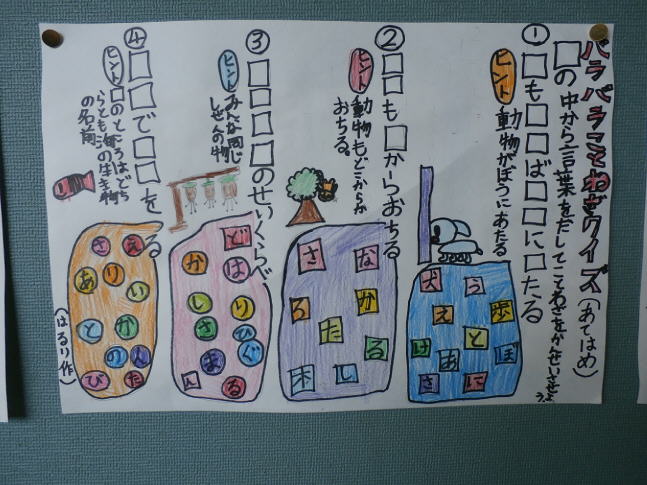 バラバラことわざクイズ(あてはめ)
□の中から言葉をだしてことわざをかせいさせよう。
① □も□□ば□□に□たる
ヒント 動物がぼうにあたる
犬 う
え 歩
と
け あ ぼ
さ に
② □□も□からおちる
ヒント 動物もどこからか
おちる。
さ な
ろ か
た
る
木 し
③ □□□□のせいくらべ
ヒント みんな同じ
しぜんの物
ど
か は
し り
さ ひ
ま ぐ
ん る
④ □□で□□を る
ヒント □のところはどち
らとも海の生き物
の名前
さ え
あ り い
と か
の ん
び た
(はるり作)